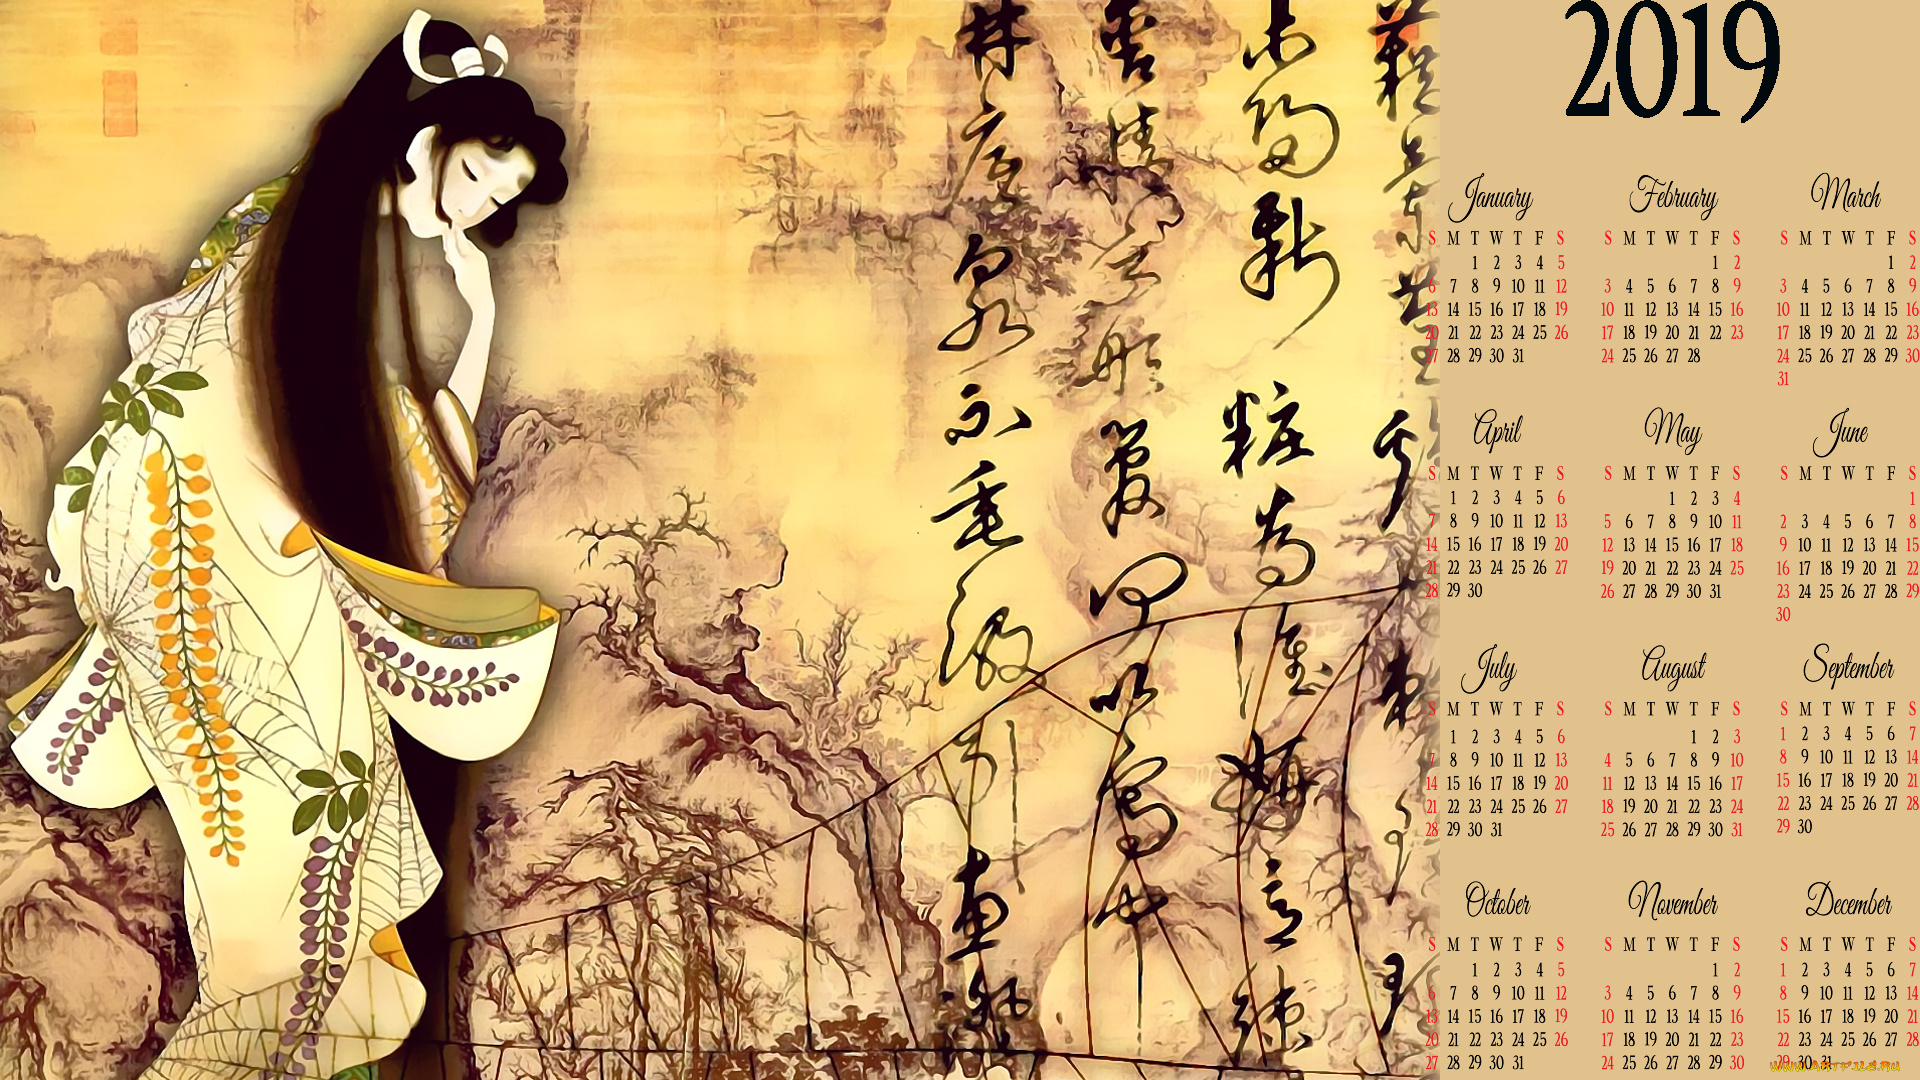 2019
January
S M T W T F S
1 2 3 4 5
6 7 8 9 10 11 12
13 14 15 16 17 18 19
20 21 22 23 24 25 26
27 28 29 30 31
February
S M T W T F S
1 2
3 4 5 6 7 8 9
10 11 12 13 14 15 16
17 18 19 20 21 22 23
24 25 26 27 28
March
S M T W T F S
1 2
3 4 5 6 7 8 9
10 11 12 13 14 15 16
17 18 19 20 21 22 23
24 25 26 27 28 29 30
31
April
S M T W T F S
1 2 3 4 5 6
7 8 9 10 11 12 13
14 15 16 17 18 19 20
21 22 23 24 25 26 27
28 29 30
May
S M T W T F S
1 2 3 4
5 6 7 8 9 10 11
12 13 14 15 16 17 18
19 20 21 22 23 24 25
26 27 28 29 30 31
June
S M T W T F S
1
2 3 4 5 6 7 8
9 10 11 12 13 14 15
16 17 18 19 20 21 22
23 24 25 26 27 28 29
30
July
S M T W T F S
1 2 3 4 5 6
7 8 9 10 11 12 13
14 15 16 17 18 19 20
21 22 23 24 25 26 27
28 29 30 31
August
S M T W T F S
1 2 3
4 5 6 7 8 9 10
11 12 13 14 15 16 17
18 19 20 21 22 23 24
25 26 27 28 29 30 31
September
S M T W T F S
1 2 3 4 5 6 7
8 9 10 11 12 13 14
15 16 17 18 19 20 21
22 23 24 25 26 27 28
29 30
October
S M T W T F S
1 2 3 4 5
6 7 8 9 10 11 12
13 14 15 16 17 18 19
20 21 22 23 24 25 26
27 28 29 30 31
November
S M T W T F S
1 2
3 4 5 6 7 8 9
10 11 12 13 14 15 16
17 18 19 20 21 22 23
24 25 26 27 28 29 30
December
S M T W T F S
1 2 3 4 5 6 7
8 9 10 11 12 13 14
15 16 17 18 19 20 21
22 23 24 25 26 27 28
29 30 31
www.ArtFile.ru